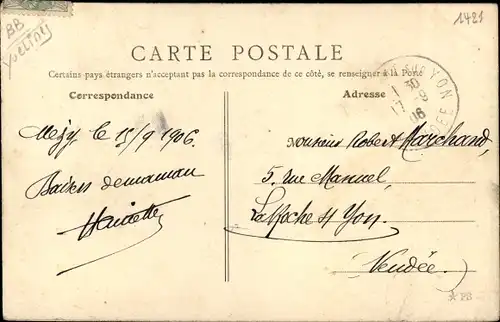 BB
Yvelines
1421
CARTE POSTALE
Certains pays étrangers n'acceptant pas la correspondance de ce côté, se renseigner à la Poste
Correspondance
Adresse
Mézy, le 15/9 1906.
Baisers de maman
Monsieur Robert Marchand,
5, Rue Manuel,
La Roche s/ Yon.
Vendée.)